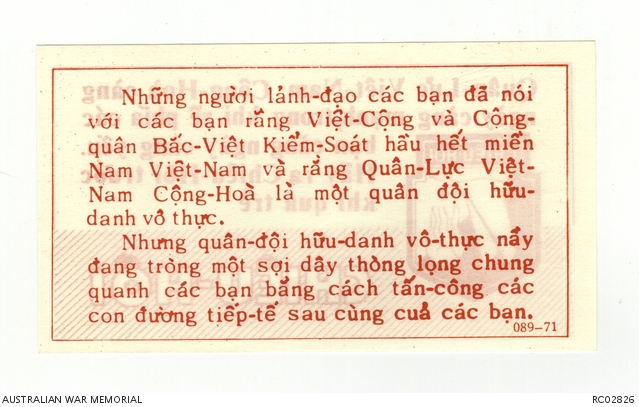 Những người lảnh-đạo các bạn đã nói
với các bạn rằng Việt-Cộng và Cộng-
quân Bấc-Việt Kiểm-Soát hầu hết miền
Nam Việt-Nam và rằng Quân-Lực Việt-
Nam Cộng-Hoà là một quân đội hữu-
danh vô thực.
Nhưng quân-đội hữu-danh vô-thực nầy
đang tròng một sợi dây thòng lọng chung
quanh các bạn bằng cách tấn-công các
con đường tiếp-tế sau cùng cuả các bạn.
089-71
AUSTRALIAN WAR MEMORIAL
RC02826